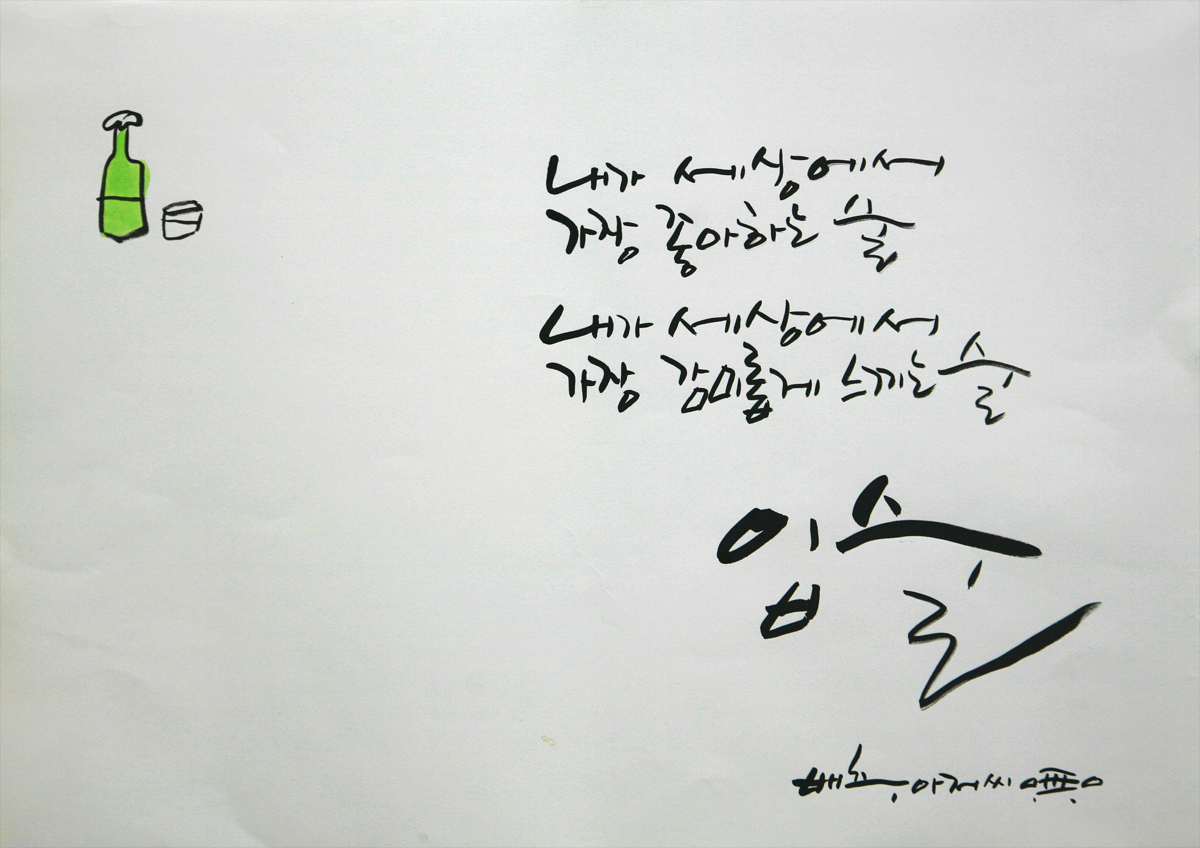 내가 세상에서
가장 좋아하는 술
내가 세상에서
가장 감미롭게 느끼는 술
입술
아저씨